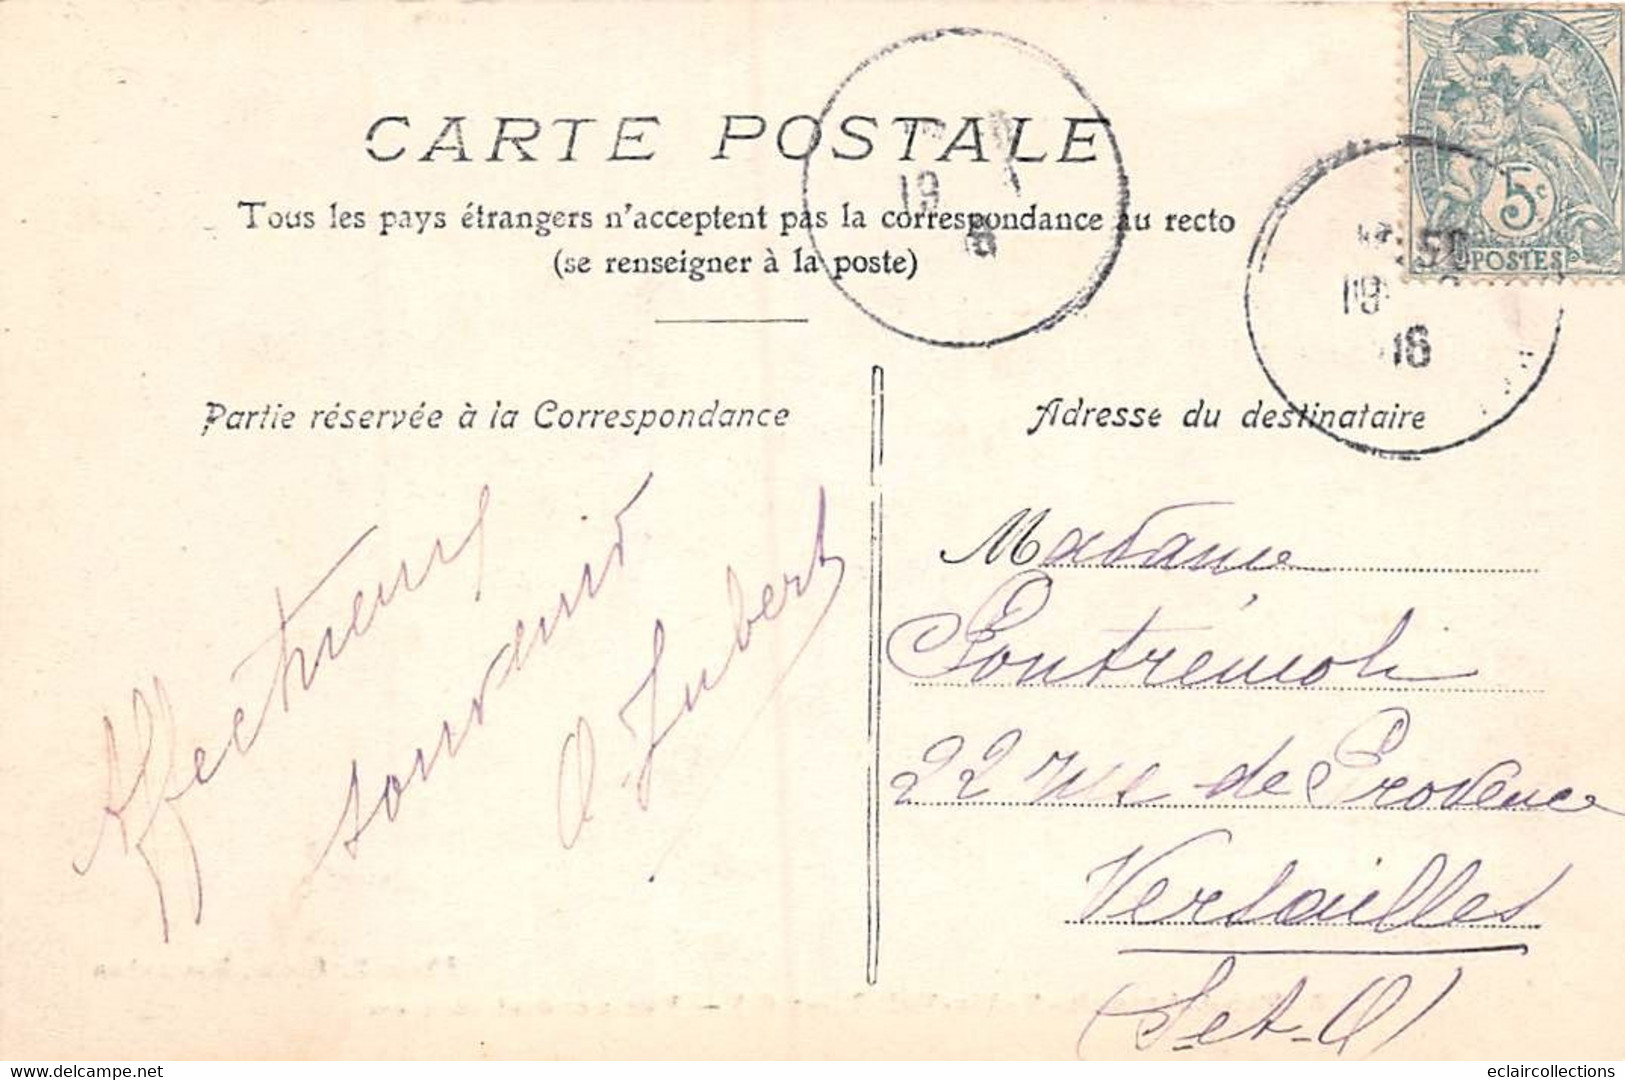 CARTE POSTALE
Tous les pays étrangers n'acceptent pas la correspondance au recto
(se renseigner à la poste)
5c
POSTES
19
16
50
19
16
Partie réservée à la Correspondance
Adresse du destinataire
Affectueux
souvenir
A. Jubert
Madame
Pontrémoli
22 rue de Provence
Versailles
(S-et-O)
www.delcampe.net
eclaircollections